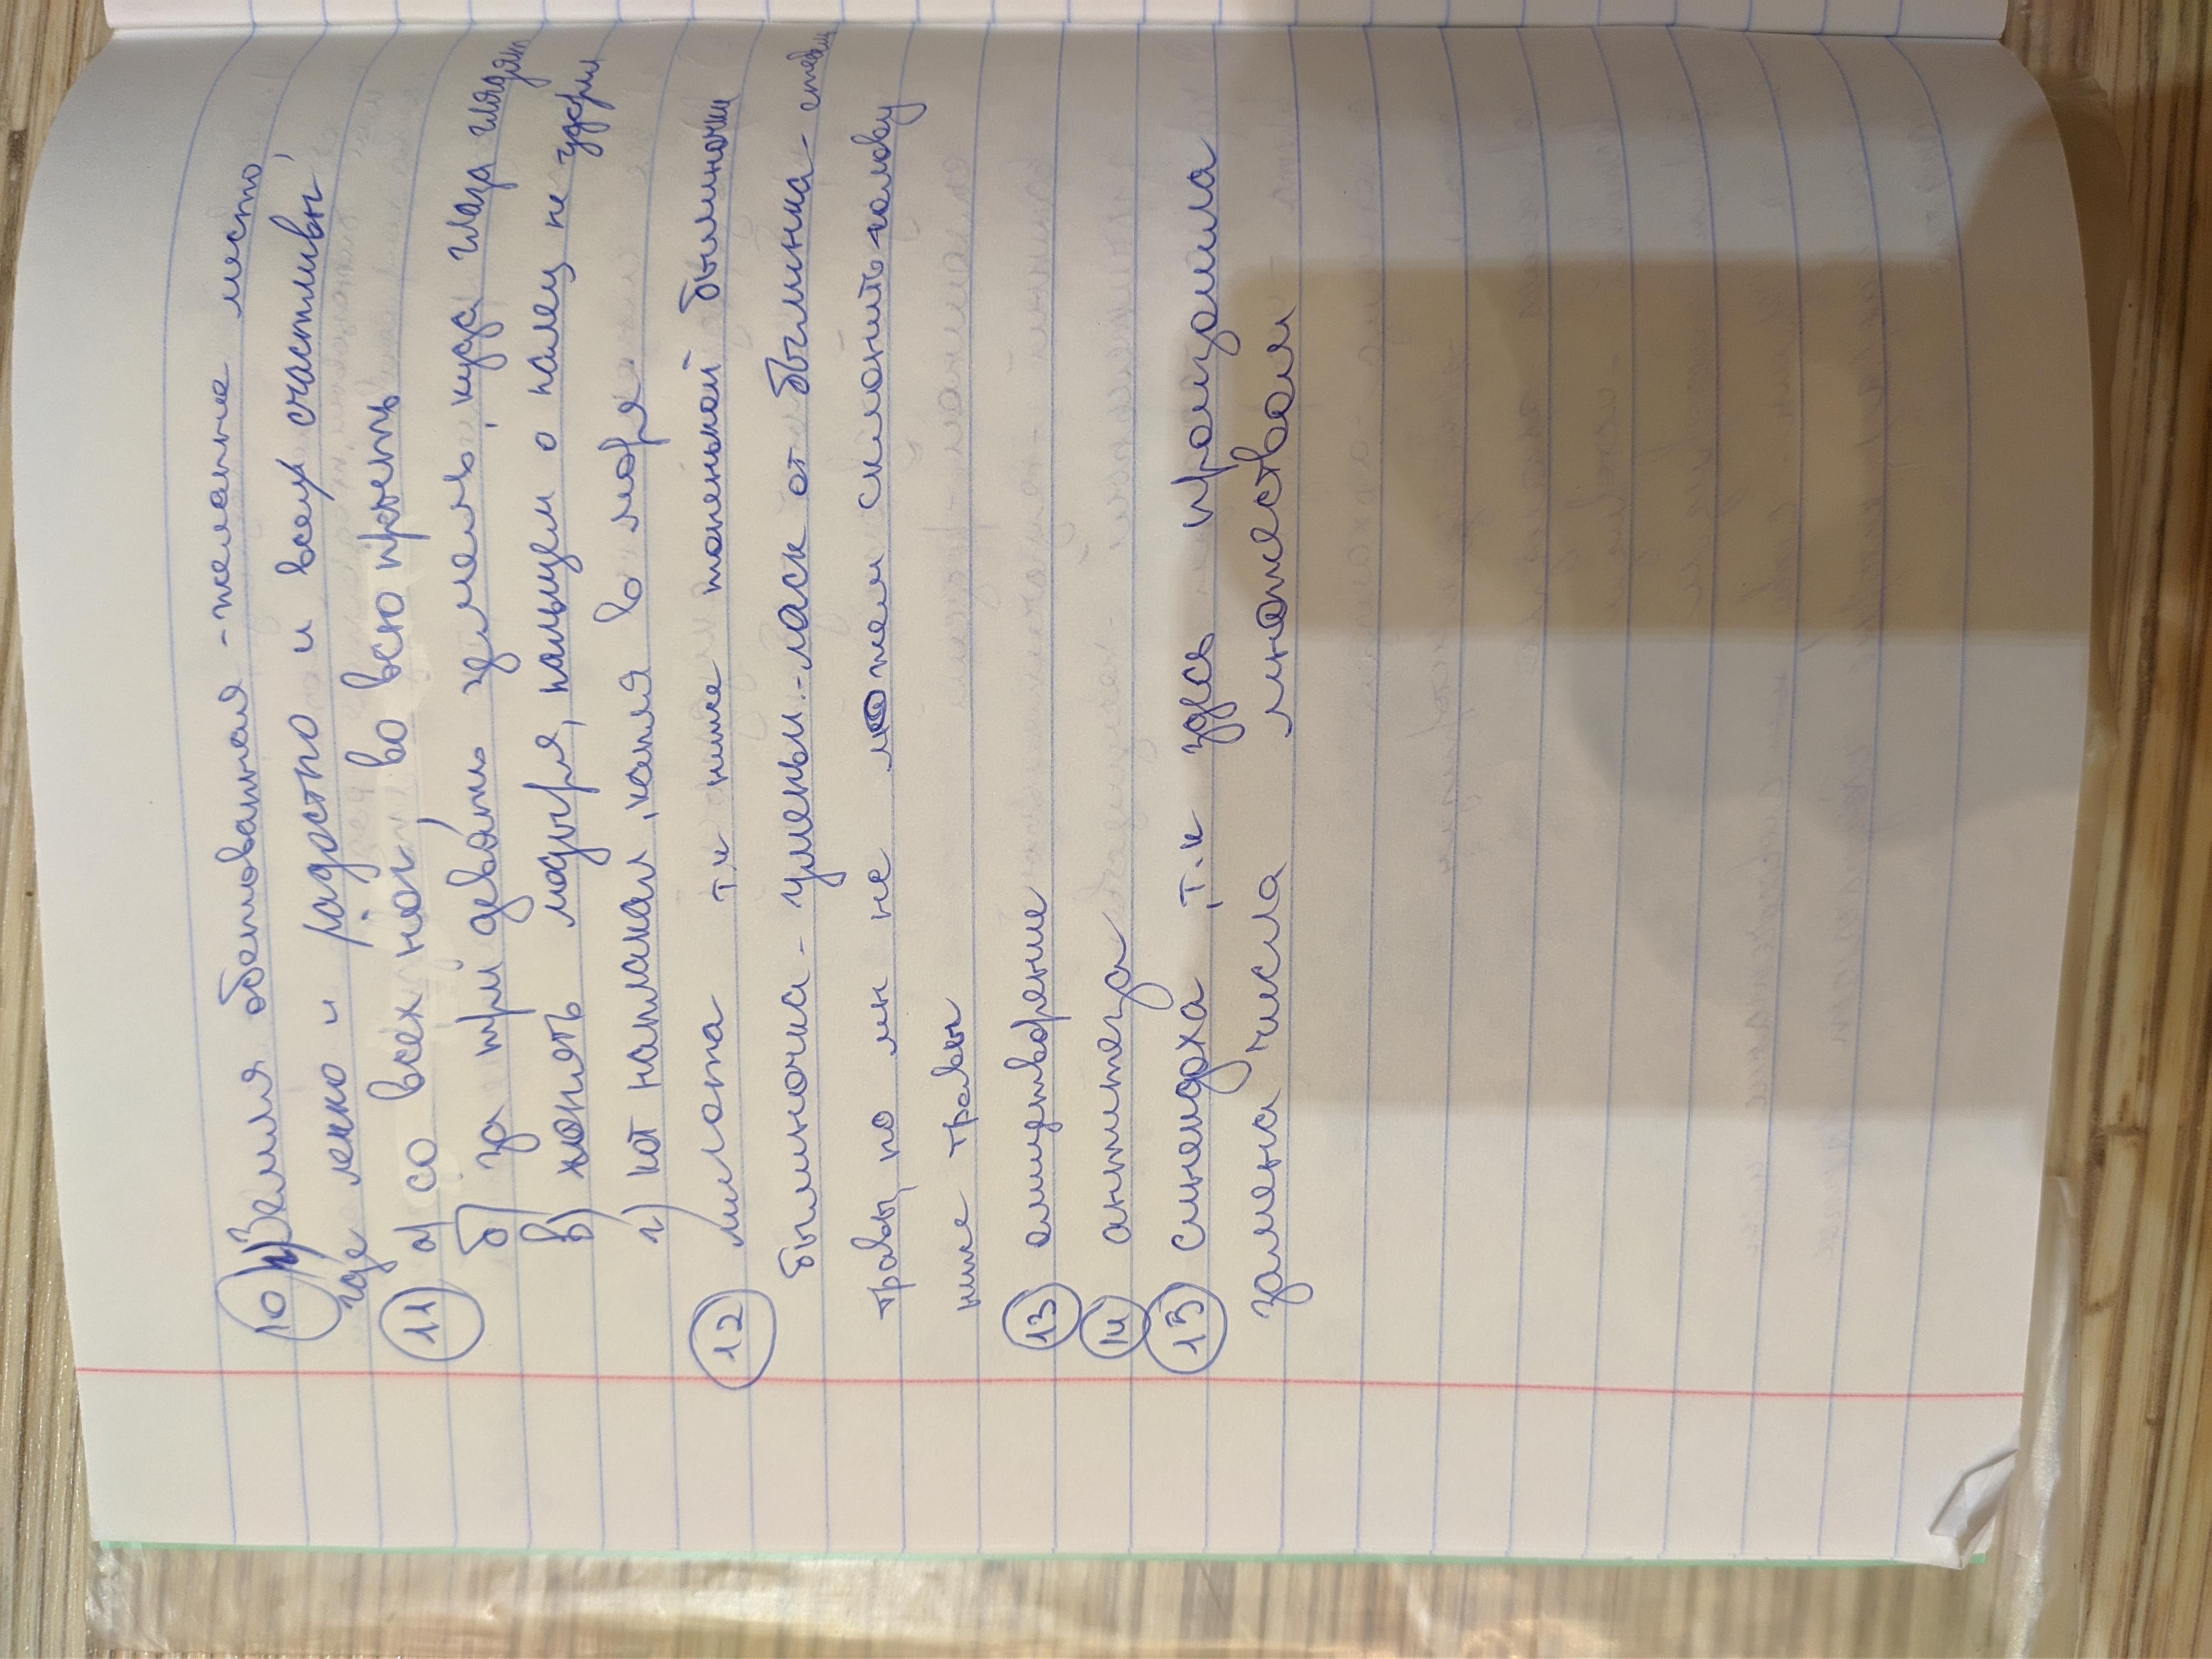 10 Земля обетованная - желание место,
где легко и радостно и всех счастливы
11 а) со всех ног, во всю прыть
б) за три девять земель, куда глаза глядят
в) гонять лодыря, пальцем о палец не удрил
г) кот наплакал, капля в море.
12 литота т.к ниже тоненькой былиночки
былиночка - уменьш.-ласк от былинка - стебель
травы, но мн не можем склонить голову
ниже травы
13 олицетворение
14 антитеза
15 Синекдоха, т.к здесь произошла
замена числа множеством